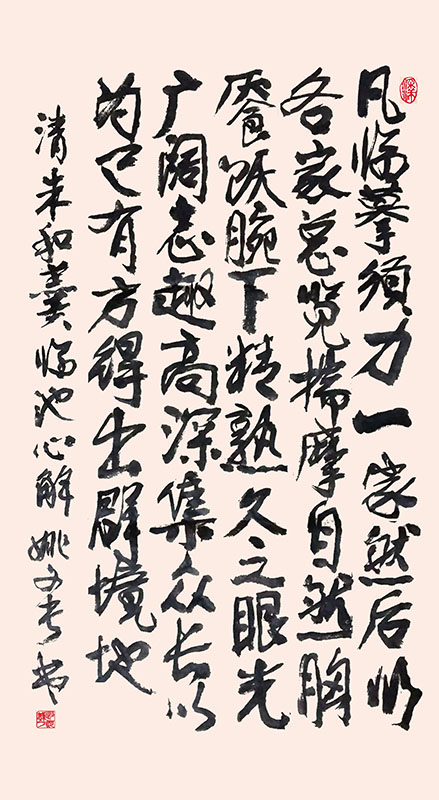 凡临摹须力一家然后以
各家总览揣摩自然胸
餍饫腕下精熟久之眼光
广阔志趣高深集众长以
为己有方得出群境地
清朱和羹临池心解姚书